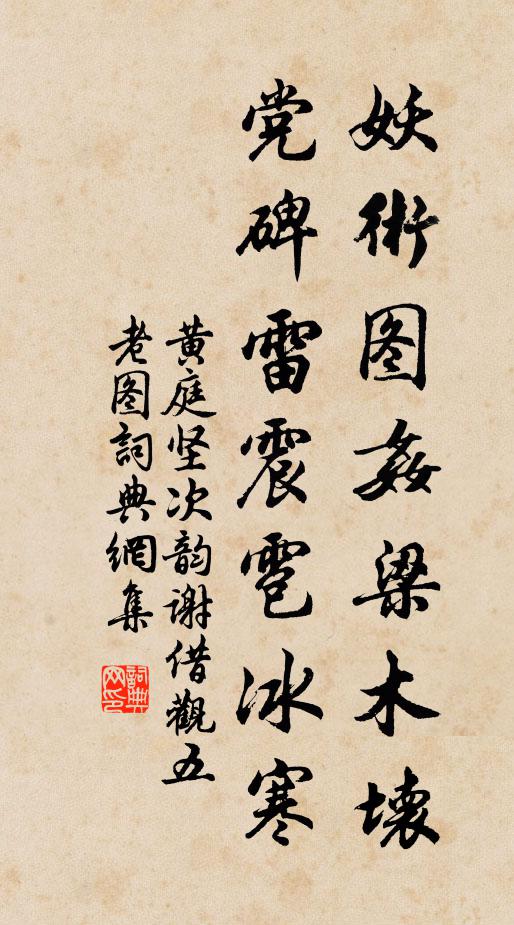 妖術图姦梁木壞
党碑雷震雹冰寒
黄庭坚次韵谢借觀五
老图詞典網集
詞典网印